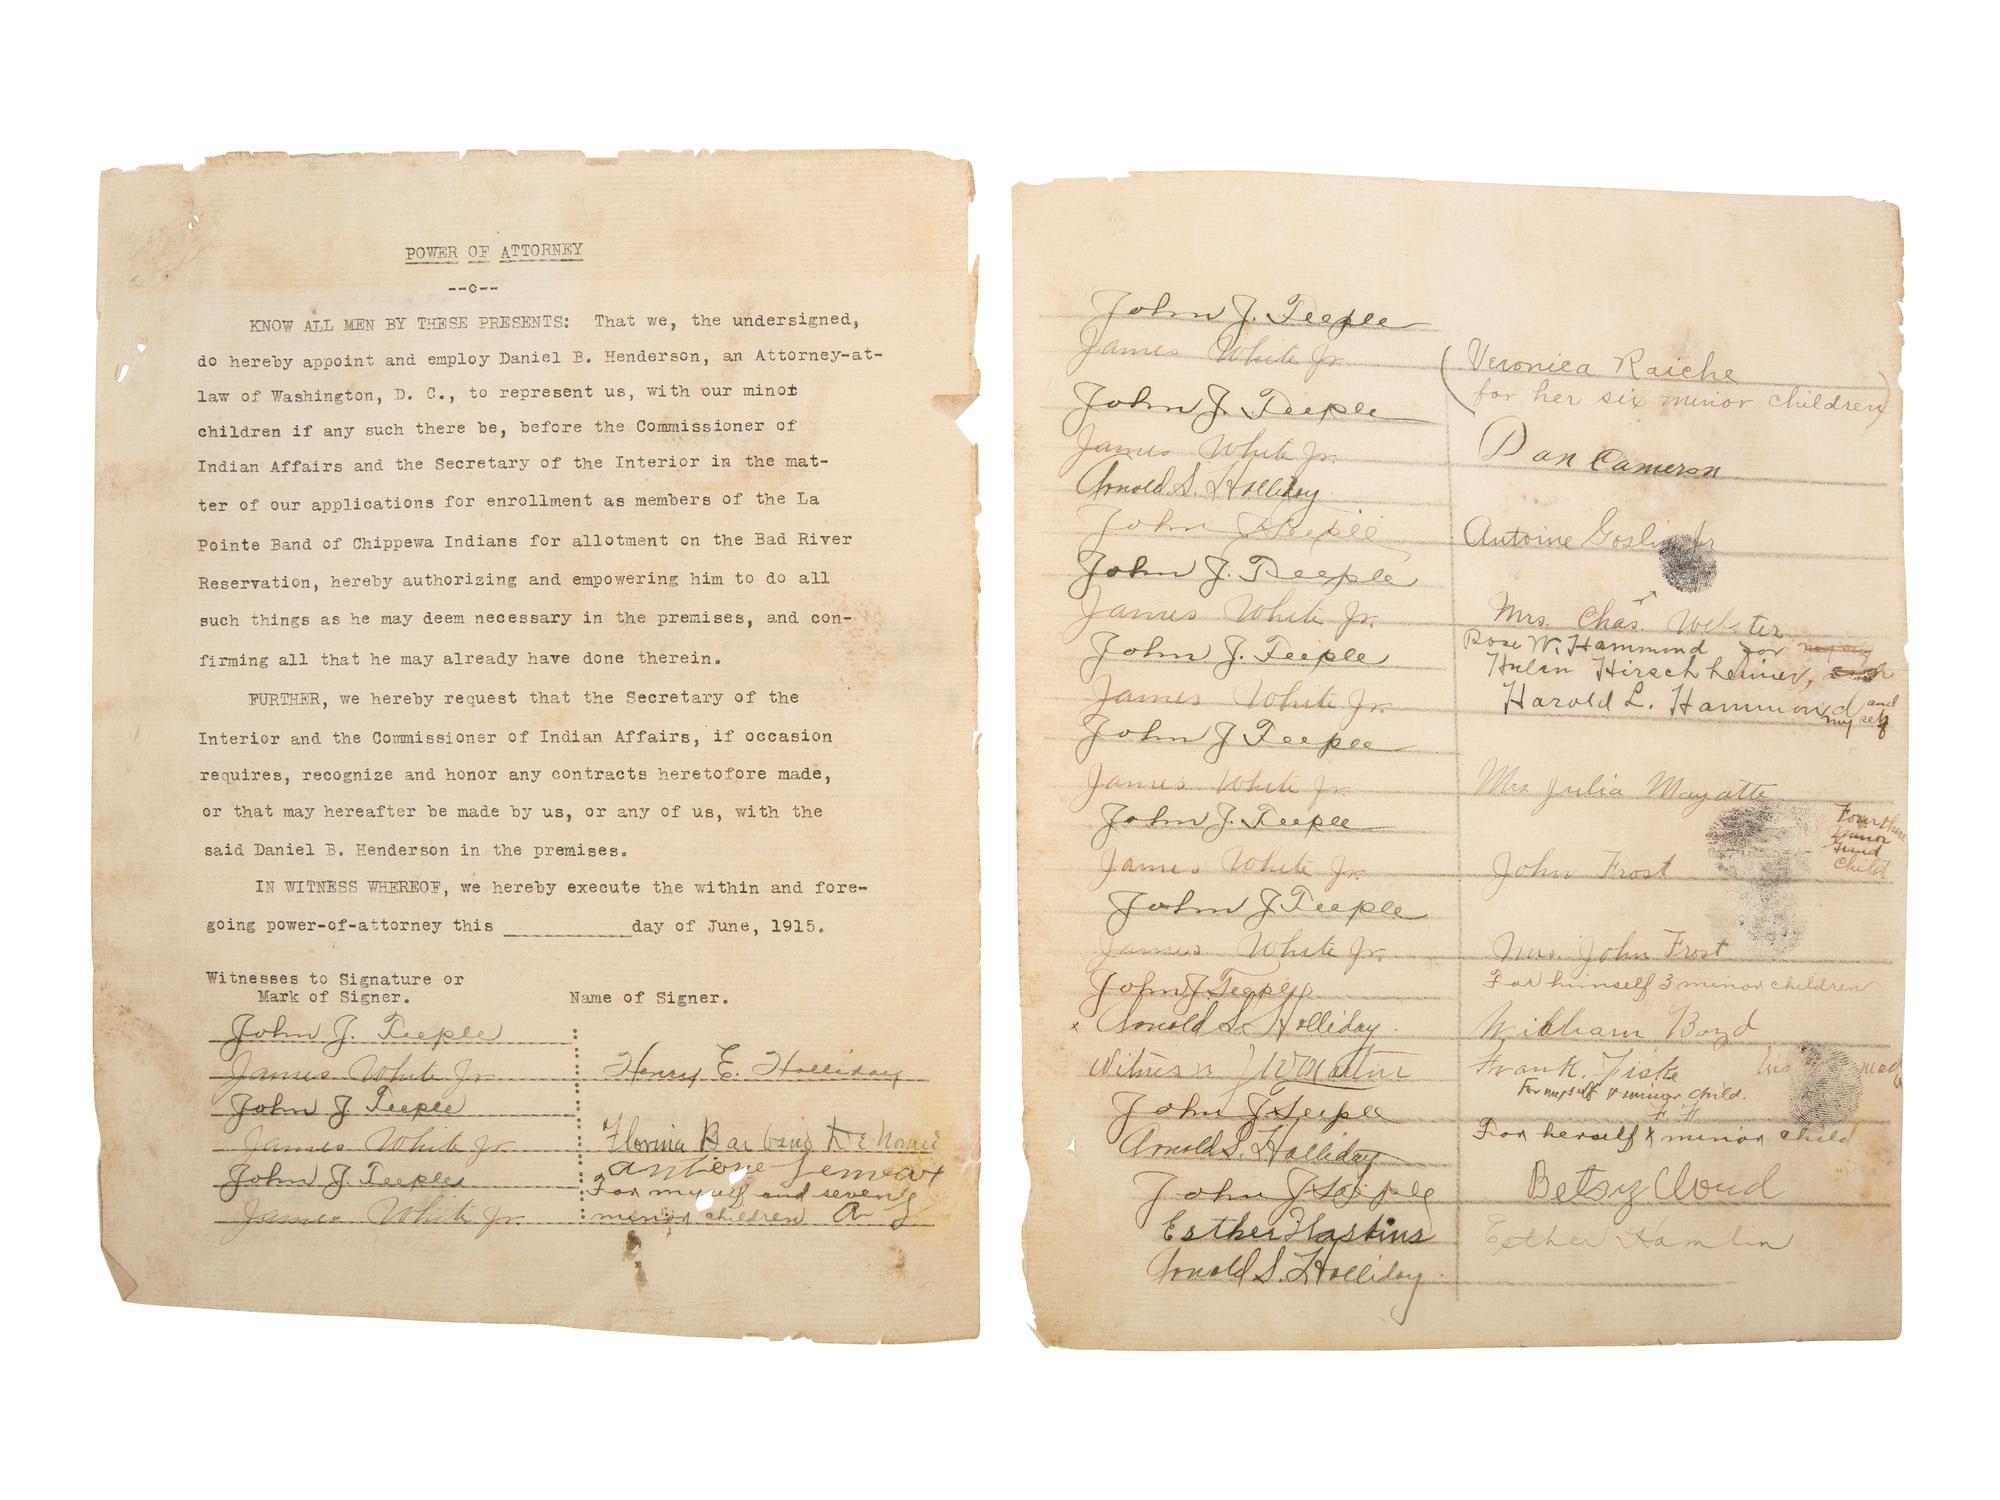 POWER OF ATTORNEY
--o--
KNOW ALL MEN BY THESE PRESENTS: That we, the undersigned,
do hereby appoint and employ Daniel B. Henderson, an Attorney-at-
law of Washington, D. C., to represent us, with our minor
children if any such there be, before the Commissioner of
Indian Affairs and the Secretary of the Interior in the mat-
ter of our applications for enrollment as members of the La
Pointe Band of Chippewa Indians for allotment on the Bad River
Reservation, hereby authorizing and empowering him to do all
such things as he may deem necessary in the premises, and con-
firming all that he may already have done therein.
FURTHER, we hereby request that the Secretary of the
Interior and the Commissioner of Indian Affairs, if occasion
requires, recognize and honor any contracts heretofore made,
or that may hereafter be made by us, or any of us, with the
said Daniel B. Henderson in the premises.
IN WITNESS WHEREOF, we hereby execute the within and fore-
going power-of-attorney this __________day of June, 1915.
Witnesses to Signature or
Mark of Signer.
Name of Signer.
John J. Teeple
James White Jr.
John J. Teeple
James White Jr.
John J. Teeple
James White Jr.
Henry E. Holliday
Florina
Antione
For myself and seven
minor children A
John J. Teeple
James White Jr.
John J. Teeple
James White Jr.
Arnold S. Holliday
John J Teeple
John J. Teeple
James White Jr.
John J. Teeple
James White Jr.
John J Teeple
James White Jr.
John J. Teeple
James White Jr.
John J Teeple
James White Jr.
John J Teeple
x Arnold S. Holliday
Witness
John J Teeple
Arnold S. Holliday
John J Teeple
Esther Haskins
Arnold S. Holliday
(Veronica Raiche
for her six minor children)
Dan Cameron
Antoine
Mrs. Chas. Webster
Rose W. Hammond for
Helen Hirschheimer,
Harold L. Hammond and
myself
Mrs Julia Mayotte
minor
child
John Frost
Mrs. John Frost
For himself 3 minor children
William Boyd
Frank Fiske his mark
For myself & minor child.
F F
For herself & minor child
Betsy Cloud
Esther Hamlin